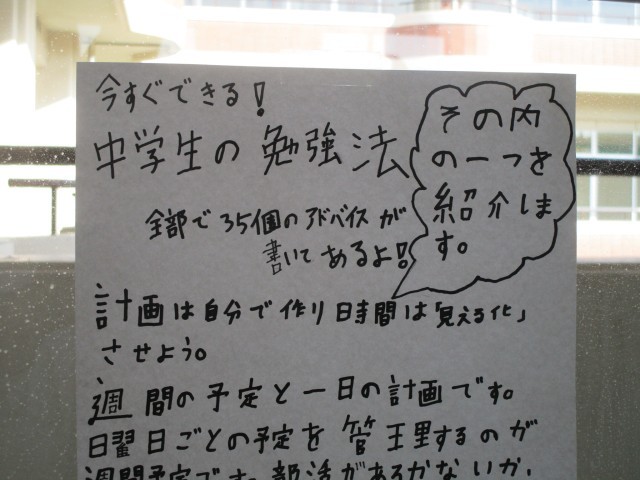 今すぐできる!
中学生の勉強法
その内
の一つを
紹介しま
す。
全部で35個のアドバイスが
書いてあるよ!
計画は自分で作り日時間は「見える化」
させよう。
週間の予定と一日の計画です。
曜日ごとの予定を管理するのが
週間予定です。部活があるかないか、